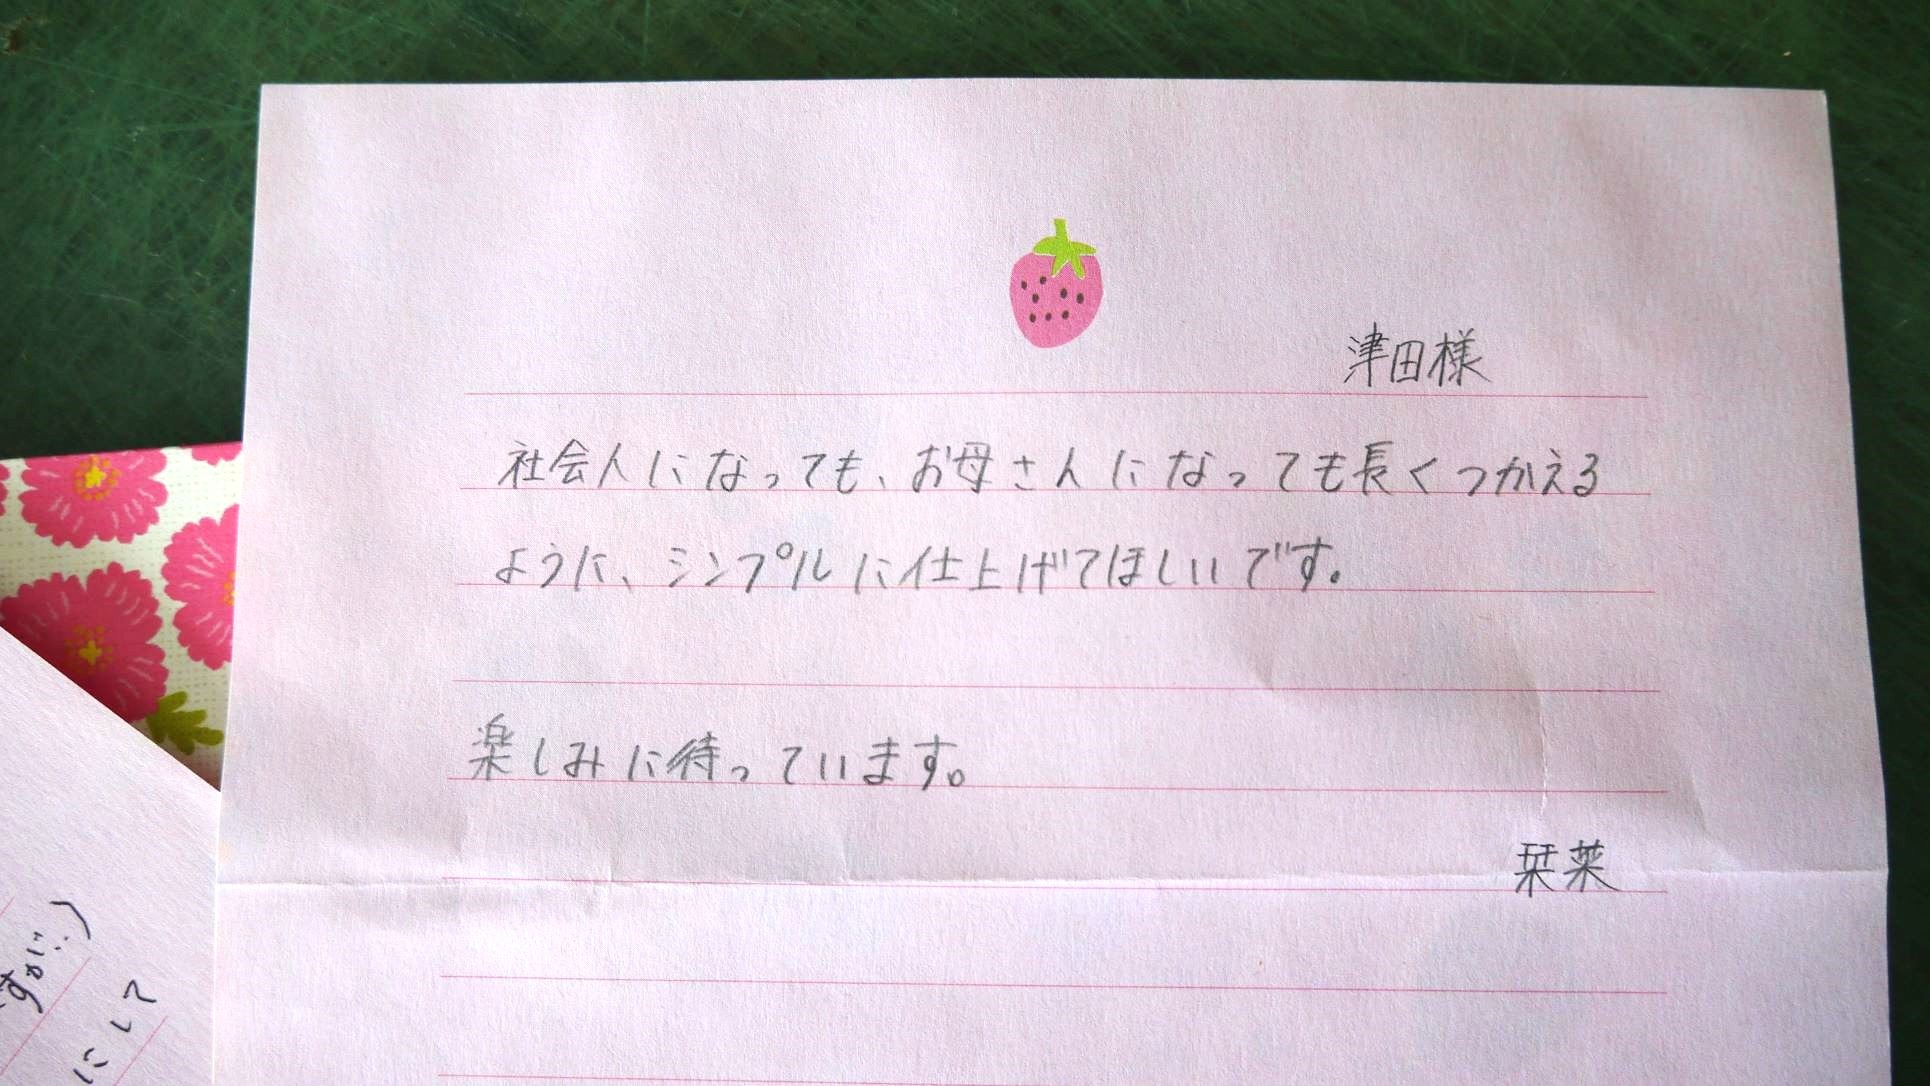 津田様
社会人になっても、お母さんになっても長くつかえる
ように、シンプルに仕上げてほしいです。
楽しみに待っています。
栞菜
すが‥)
にして